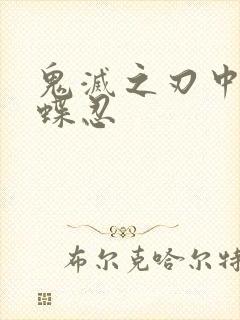 鬼滅之刃中
蝶忍
布尔克哈尔特